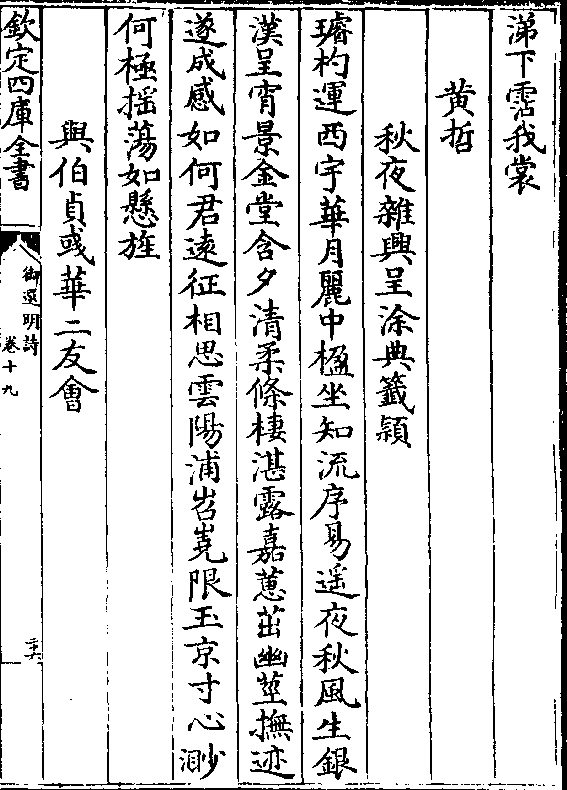 涕下霑我裳
黄哲
秋夜雜興呈涂典籤頴
璿杓運西宇華月麗中楹坐知流序易遥夜秋風生銀
漢呈宵景金堂含夕清柔條棲湛露嘉蕙茁幽莖撫迹
遂成感如何君逺征相思雲陽浦岧嶤限玉京寸心渺
何極揺蕩如懸旌
與伯貞彧華二友會
欽定四庫全書
御選明詩
卷十九
二六